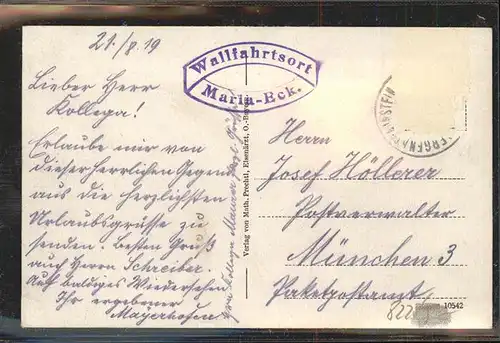 21./8.19
Wallfahrtsort
Maria-Eck.
Lieber Herr
Kollega!
Erlaube mir von
dieser herrlichen Gegend
aus die herzlichsten
Urlaubsgrüsse zu
senden. Besten Gruß
auch Herrn Schreiber.
Auf baldiges Wiedersehen
Ihr ergebener
Mayerhofen
Kollega Maurer
Verlag von Math. Prechtl, Eisenärzt, O.-Bayern
Herrn
Josef Höllerer
Postverwalter
München 3
Paketpostamt
10542